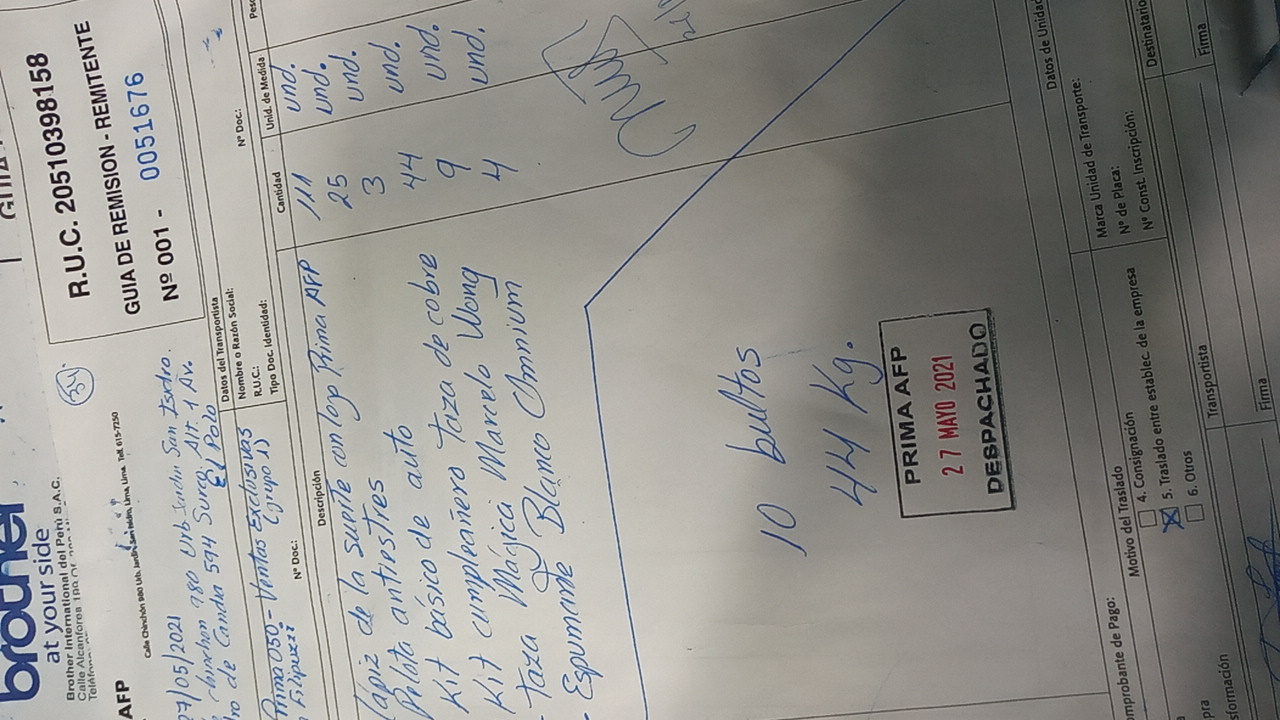 brother
at your side
Brother International del Perú S.A.C.
Calle Alcanfores
R.U.C. 20510398158
GUIA DE REMISION - REMITENTE
Nº 001 - 0051676
34
AFP
Calle Chinchón 980 Urb. Jardín, San Isidro, Lima, Lima. Telf. 615-7250
27/05/2021
Chinchon 980 Urb San Isidro.
de Candia 594 Surco Alt. 1 Av.
El Polo
Datos del Transportista
Nombre o Razón Social:
R.U.C.:
Tipo Doc. Identidad:
Nº Doc:
Prima 050 - Ventas Exclusivas
(grupo 1)
Nº Doc:
Descripción
Cantidad
Unid. de Medida
Peso
Lapiz de la suerte con logo Prima AFP 111 und.
Pelota antiestres 25 und.
Kit básico de auto 3 und.
Kit cumpleañero Taza de cobre 44 und.
- Taza Mágica Marcelo Wong 9 und.
- Espumante Blanc Omnium 4 und.
10 bultos
44 Kg.
PRIMA AFP
27 MAYO 2021
DESPACHADO
Datos de Unidad
mprobante de Pago:
Motivo del Traslado
4. Consignación
5. Traslado entre establec. de la empresa
6. Otros
Marca Unidad de Transporte:
Nº de Placa:
Nº Const. Inscripción:
Destinatario
pra
sformación
Transportista
Firma
Firma